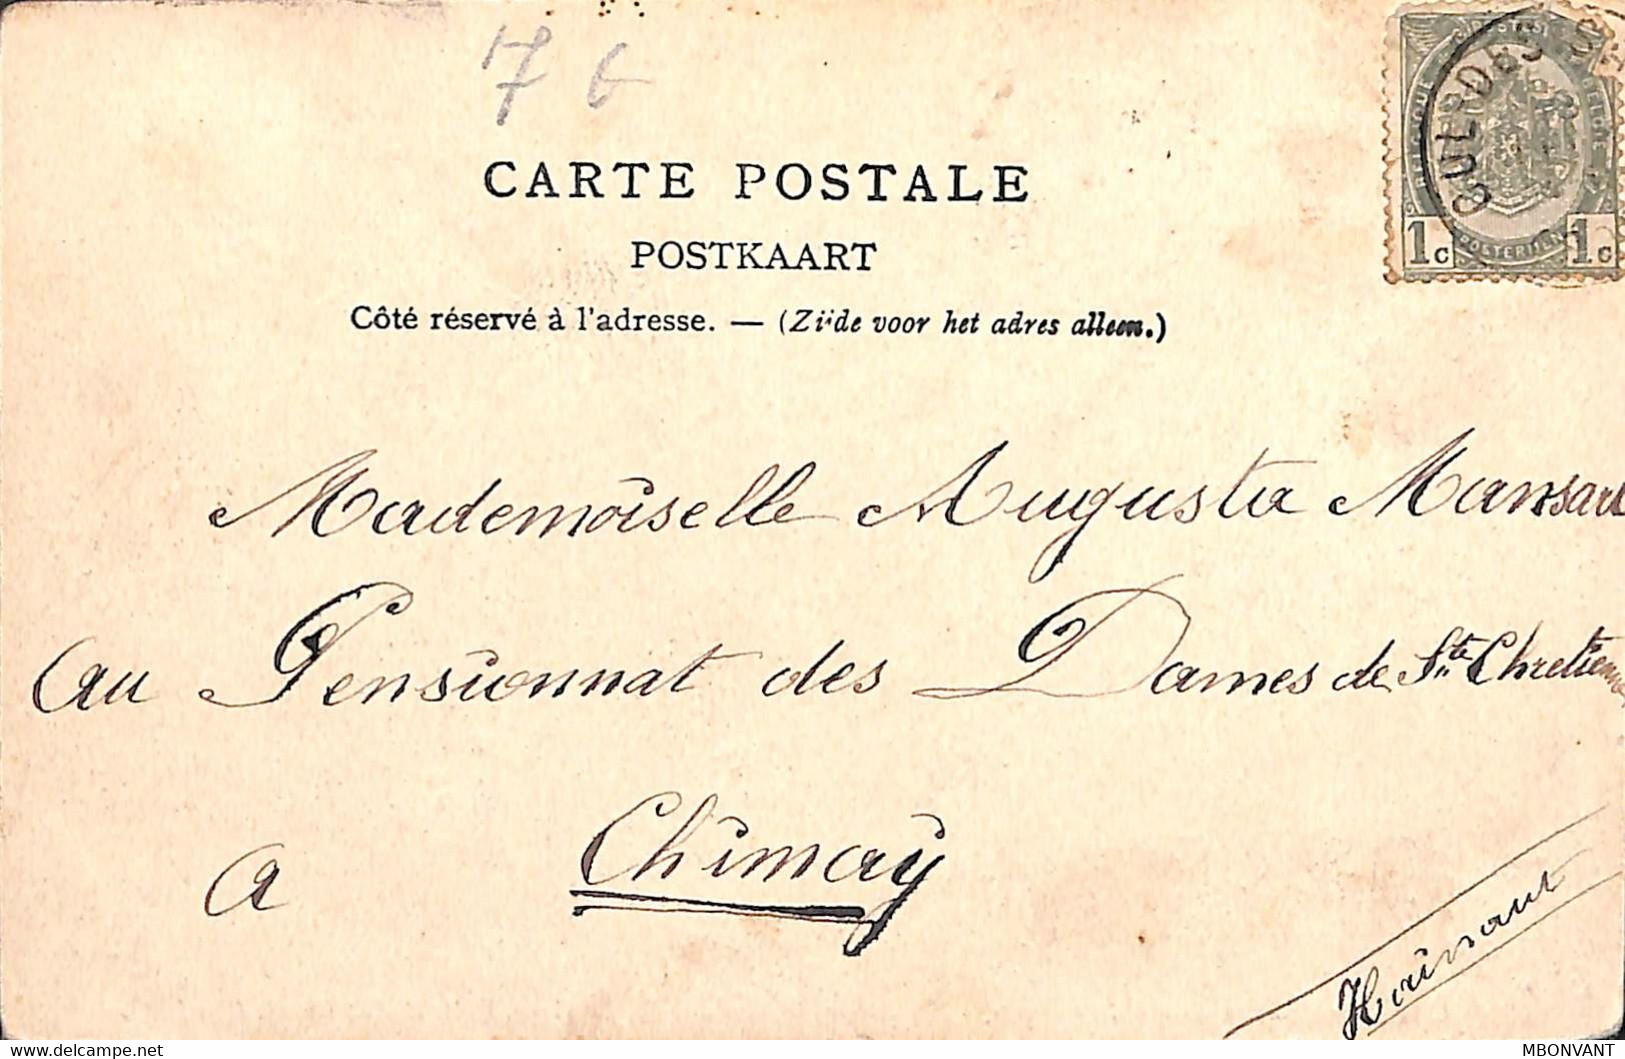 7 6
CARTE POSTALE
POSTKAART
Côté réservé à l'adresse. — (Zijde voor het adres alleen.)
POSTERIJEN
1c 1c
Mademoiselle Augusta Mansart
au Pensionnat des Dames de Ste Chretienne
a Chimay
Hainaut
MBONVANT